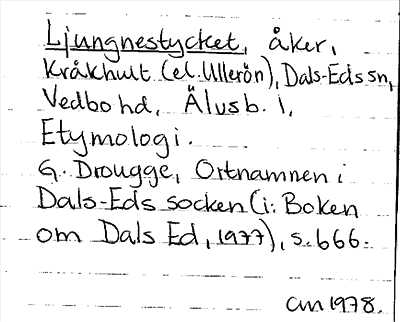 Ljungnestycket, åker,
Kråkhult (el. Ullerön), Dals-Eds sn,
Vedbo hd, Älvsb. l,
Etymologi.
G. Drougge, Ortnamnen i
Dals-Eds socken (i: Boken
om Dals Ed, 1977), s. 666.
am 1978.